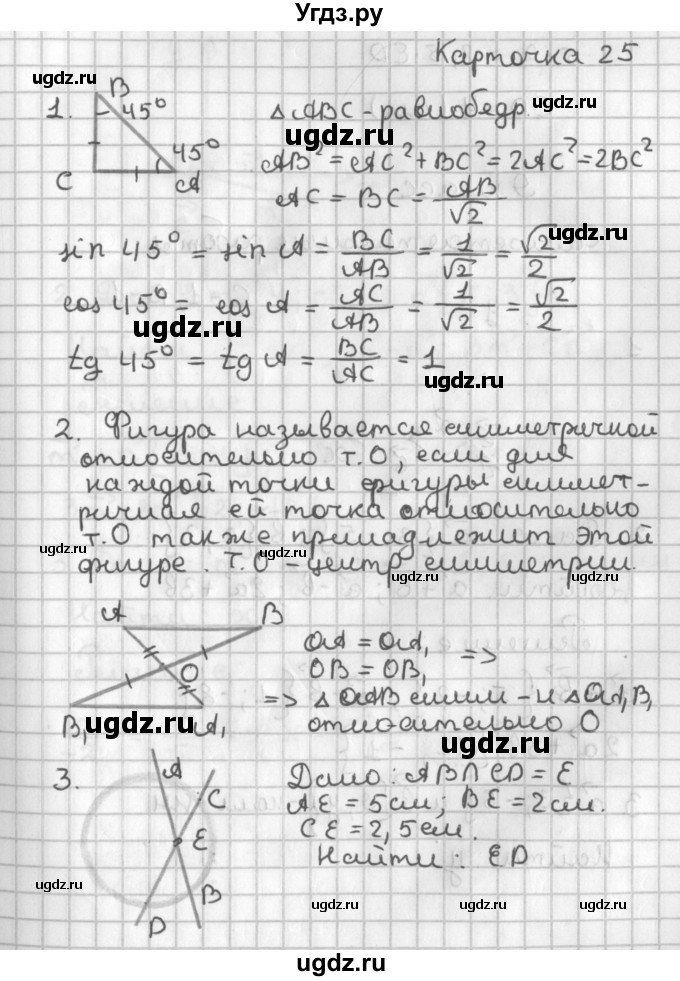 Угдз.ру
Карточка 25
1. B 45° 45° C A
△ABC - равнобедр.
AB² = AC² + BC² = 2AC² = 2BC²
AC = BC = AB/√2
sin 45° = sin A = BC/AB = 1/√2 = √2/2
cos 45° = cos A = AC/AB = 1/√2 = √2/2
tg 45° = tg A = BC/AC = 1
2. Фигура называется симметричной
относительно т.О, если для
каждой точки фигуры симмет-
ричная ей точка относительно
т.О также принадлежит этой
фигуре. т.О - центр симметрии.
A B
O
B₁ A₁
OA = OA₁
OB = OB₁ =>
=> △OAB симм-н △OA₁B₁
относительно O
3. A C E B D
Дано: AB∩CD = E
AE = 5см; BE = 2см.
CE = 2,5см.
Найти: ED
ugdz.ru